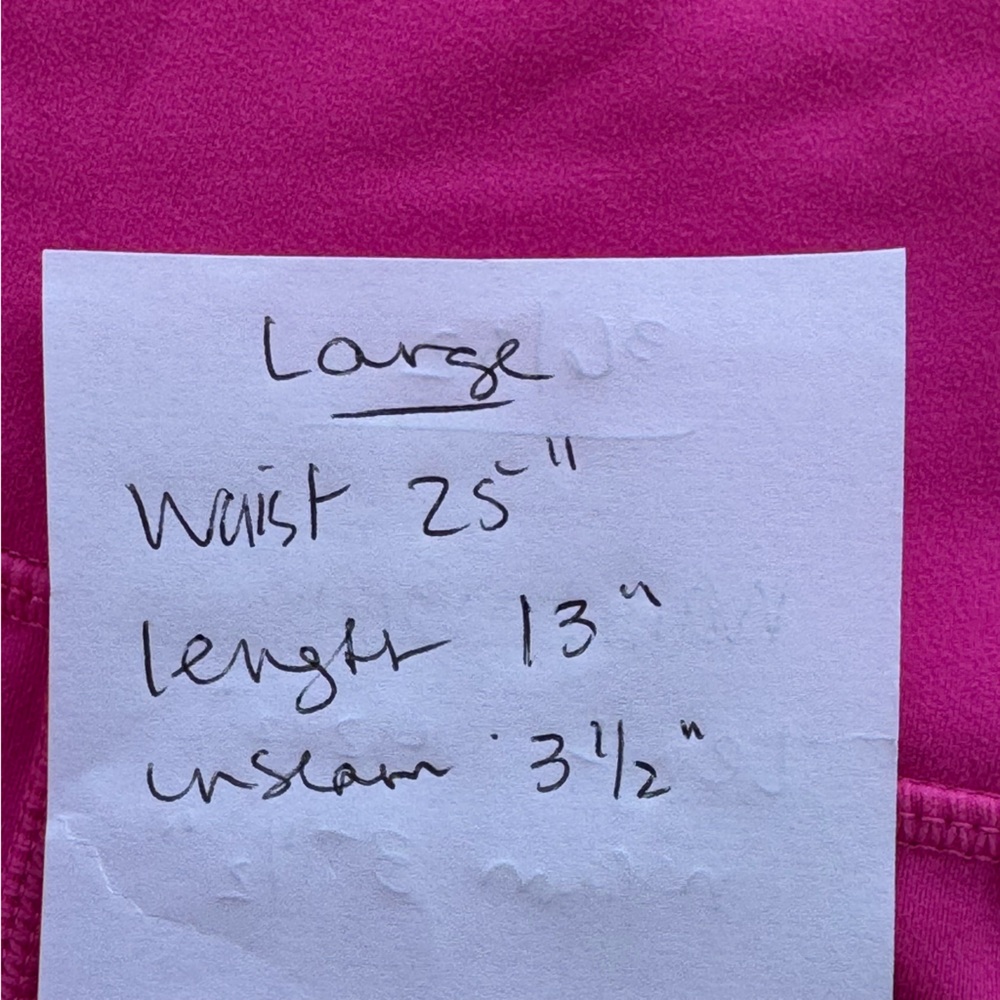 Large
Waist 25"
length 13"
inseam 3 1/2"